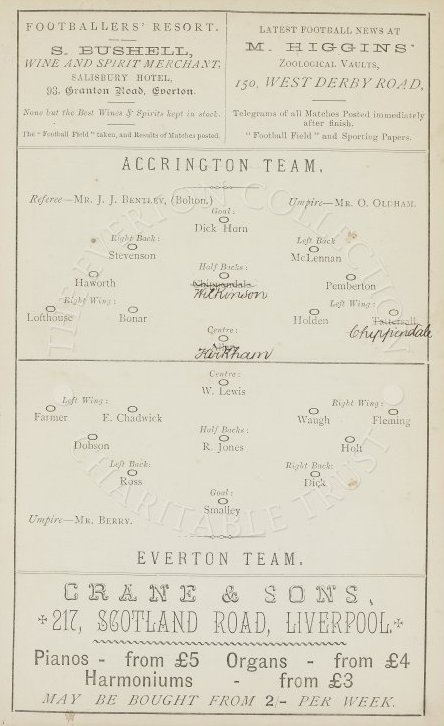 FOOTBALLERS' RESORT.
S. BUSHELL,
WINE AND SPIRIT MERCHANT,
SALISBURY HOTEL,
93, Granton Road, Everton.
None but the Best Wines & Spirits kept in stock.
The "Football Field" taken, and Results of Matches posted.
LATEST FOOTBALL NEWS AT
M. HIGGINS'
ZOOLOGICAL VAULTS,
150, WEST DERBY ROAD,
Telegrams of all Matches Posted immediately
after finish.
"Football Field" and Sporting Papers.
ACCRINGTON TEAM.
Referee—MR. J. J. BENTLEY, (Bolton.)
Umpire—MR. O. OLDHAM.
Goal:
Dick Horn
Right Back:
Stevenson
Left Back
McLennan
Half Backs:
Haworth
Chippendale
Wilkinson
Pemberton
Right Wing:
Left Wing:
Lofthouse
Bonar
Holden
Tattersall
Chippendale
Centre:
Kirkham
Centre:
W. Lewis
Left Wing:
Right Wing:
Farmer
E. Chadwick
Waugh
Fleming
Half Backs:
Dobson
R. Jones
Holt
Left Back:
Ross
Right Back:
Dick
Goal:
Smalley
Umpire—MR. BERRY.
EVERTON TEAM.
CRANE & SONS,
217, SCOTLAND ROAD, LIVERPOOL.
Pianos - from £5 Organs - from £4
Harmoniums - from £3
MAY BE BOUGHT FROM 2/- PER WEEK.
THE EVERTON COLLECTION
CHARITABLE TRUST